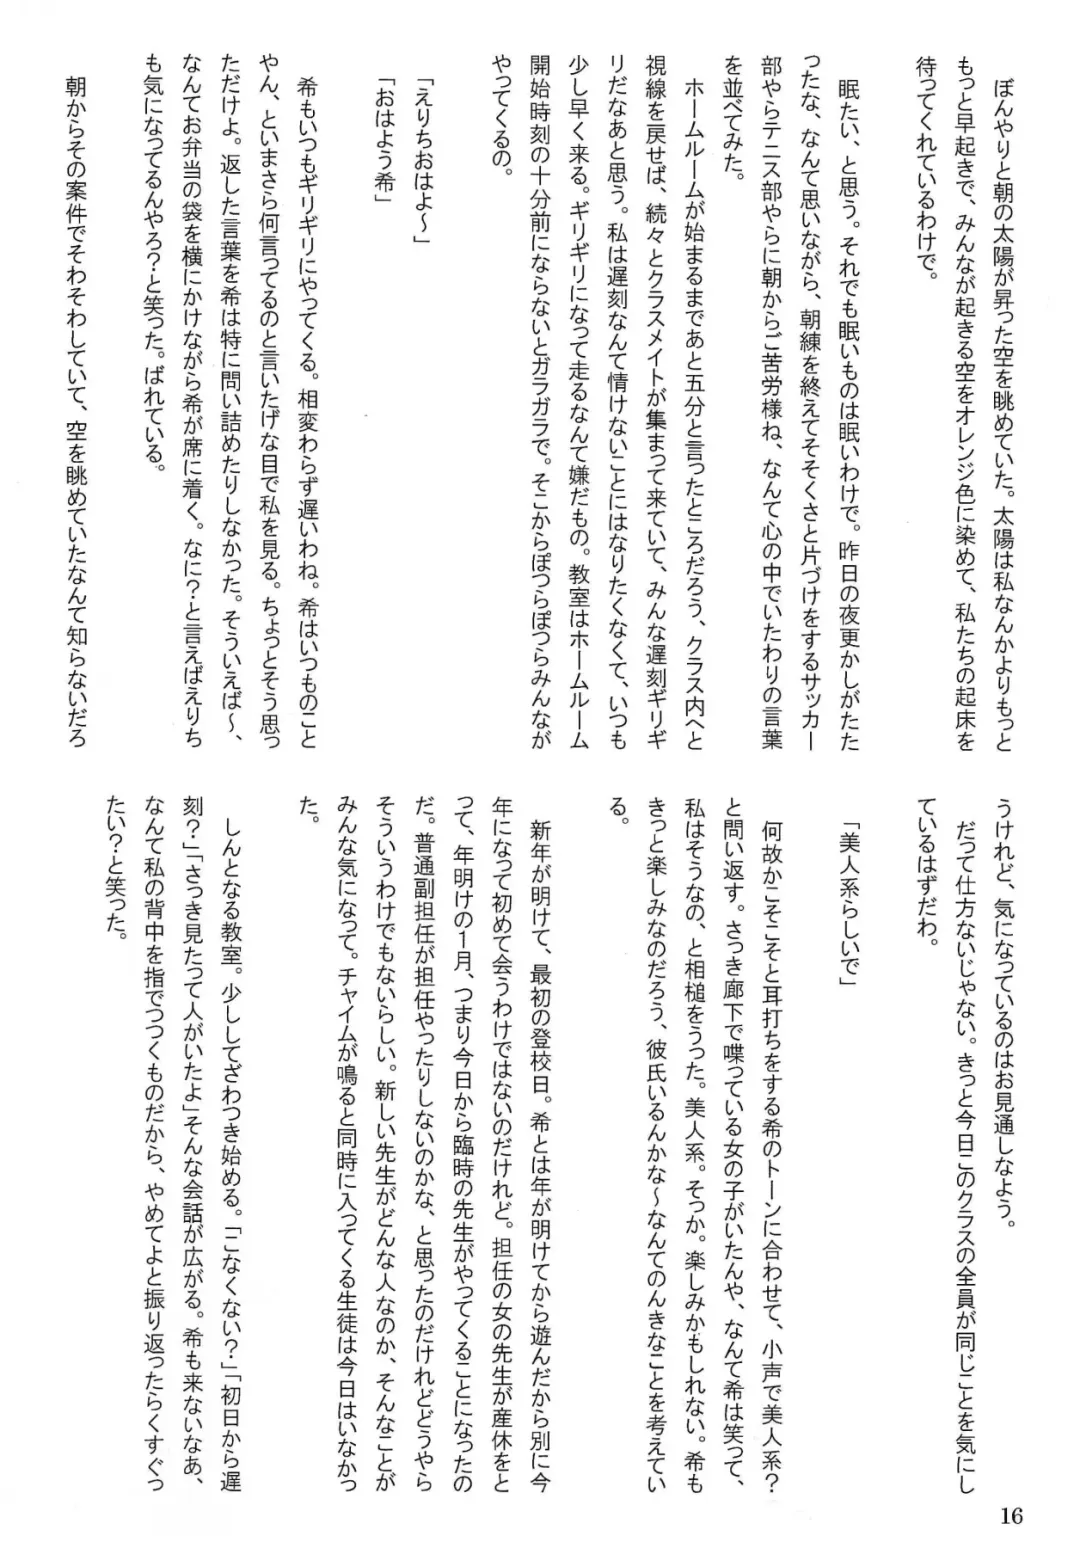 ぼんやりと朝の太陽が昇った空を眺めていた。太陽は私なんかよりもっと
もっと早起きで、みんなが起きる空をオレンジ色に染めて、私たちの起床を
待ってくれているわけで。
眠たい、と思う。それでも眠いものは眠いわけで。昨日の夜更かしがたた
ったな、なんて思いながら、朝練を終えてそそくさと片づけをするサッカー
部やらテニス部やらに朝からご苦労様ね、なんて心の中でいたわりの言葉
を並べてみた。
ホームルームが始まるまであと五分と言ったところだろう、クラス内へと
視線を戻せば、続々とクラスメイトが集まって来ていて、みんな遅刻ギリギ
リだなあと思う。私は遅刻なんて情けないことにはなりたくなくて、いつも
少し早く来る。ギリギリになって走るなんて嫌だもの。教室はホームルーム
開始時刻の十分前にならないとガラガラで。そこからぽつらぽつらみんなが
やってくるの。
「えりちおはよ～」
「おはよう希」
希もいつもギリギリにやってくる。相変わらず遅いわね。希はいつものこと
やん、といまさら何言ってるのと言いたげな目で私を見る。ちょっとそう思っ
ただけよ。返した言葉を希は特に問い詰めたりしなかった。そういえば～、
なんてお弁当の袋を横にかけながら希が席に着く。なに？と言えばえりち
も気になってるんやろ？と笑った。ばれている。
朝からその案件でそわそわしていて、空を眺めていたなんて知らないだろ
うけれど、気になっているのはお見通しなよう。
だって仕方ないじゃない。きっと今日このクラスの全員が同じことを気にし
ているはずだわ。
「美人系らしいで」
何故かこそこそと耳打ちをする希のトーンに合わせて、小声で美人系？
と問い返す。さっき廊下で喋っている女の子がいたんや、なんて希は笑って、
私はそうなの、と相槌をうった。美人系。そっか。楽しみかもしれない。希も
きっと楽しみなのだろう、彼氏いるんかな～なんてのんきなことを考えてい
る。
新年が明けて、最初の登校日。希とは年が明けてから遊んだから別に今
年になって初めて会うわけではないのだけれど。担任の女の先生が産休をと
って、年明けの1月、つまり今日から臨時の先生がやってくることになったの
だ。普通副担任が担任やったりしないのかな、と思ったのだけれどどうやら
そういうわけでもないらしい。新しい先生がどんな人なのか、そんなことが
みんな気になって。チャイムが鳴ると同時に入ってくる生徒は今日はいなかっ
た。
しんとなる教室。少ししてざわつき始める。「こなくない？」「初日から遅
刻？」「さっき見たって人がいたよ」そんな会話が広がる。希も来ないなあ、
なんて私の背中を指でつつくものだから、やめてよと振り返ったらくすぐっ
たい？と笑った。
16